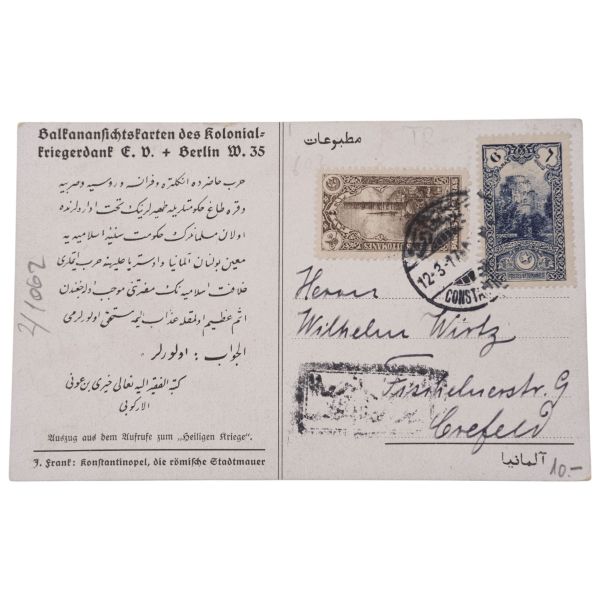 Balkanansichtskarten des Kolonial-
kriegerdank E. V. + Berlin W. 35
حرب حاضرده انكلتره وفرانسه وروسيه وصربيه
وقره طاغ حكومتلريله ظهيرلرينك تحت اداره‌لرنده
اولان مسلمانلرك حكومت سنيهٔ اسلاميه يه
معين بولنان المانيا واوستريا عليهنه حرب ايتملرى
خلافت اسلاميه نك مضرتنى موجب اوله‌جغندن
اثم عظيم اولمغله عذاب اليمه مستحق اولورلرمى
الجواب : اولورلر .
كتبه الفقير اليه تعالى خيرى بن عونى
الاركوبى
Auszug aus dem Aufrufe zum „Heiligen Kriege".
J. Frank: Konstantinopel, die römische Stadtmauer
2/1062
مطبوعات
POSTES OTTOMANES
12-3-1
CONSTANTI
Herrn
Wilhelm Wirtz
Fischelnerstr. 9
Crefeld
آلمانيا
10.-